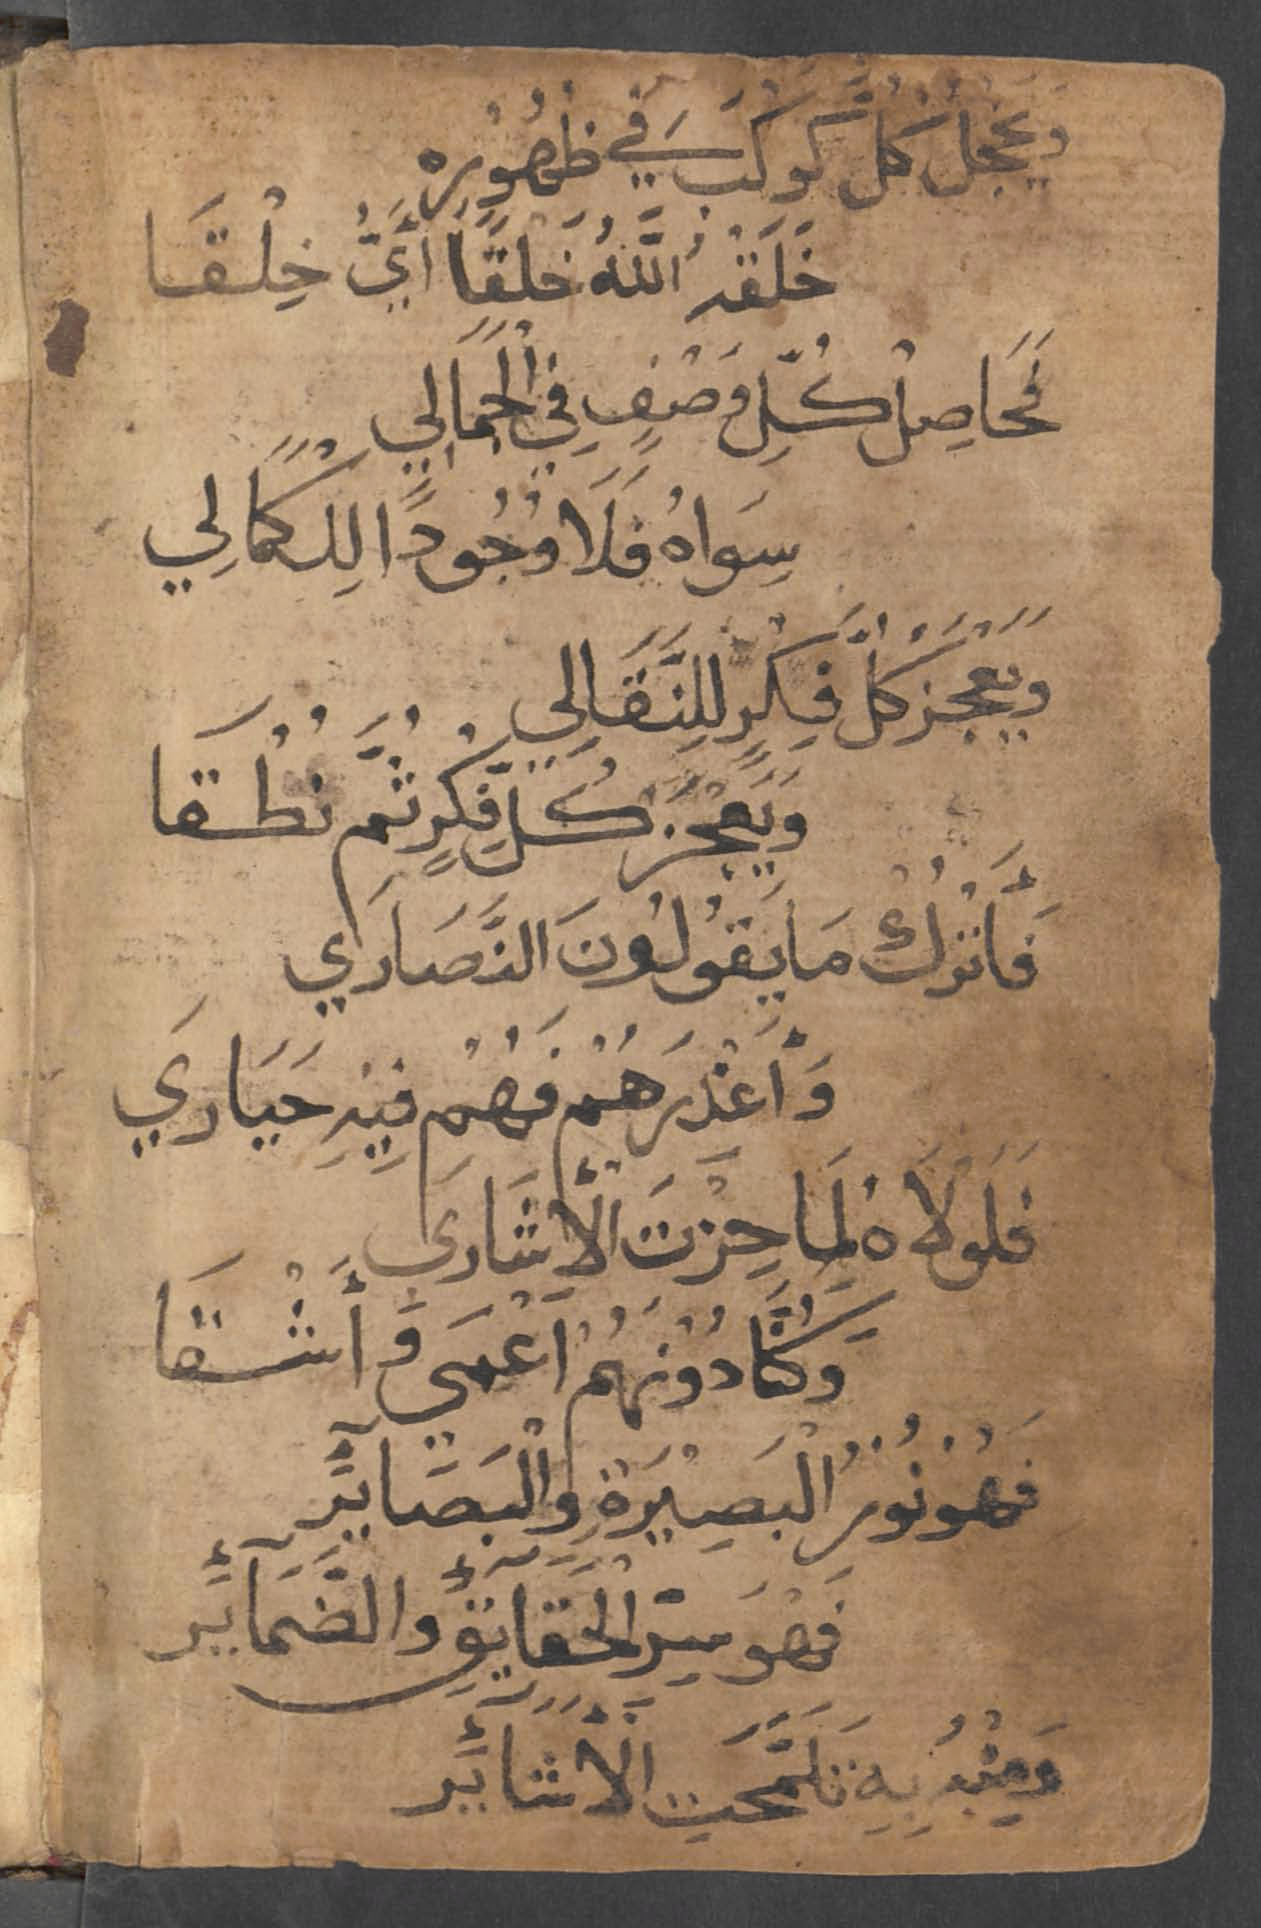 وَيَخْجَلُ كُلُّ كَوْكَبٍ فِي ظُهُورِهِ
خَلَقَهُ اللَّهُ خَلْقًا أَيُّ خِلْقَا
فَحَاصِلْ كُلِّ وَصْفٍ فِي الْجَمَالِي
سِوَاهُ فَلَا وُجُودًا لِلْكَمَالِي
وَيَعْجَزْ كُلُّ فِكْرٍ لِلنَّقَالِي
وَيَعْجَزْ كُلِّ فِكْرٍ ثُمَّ نُطْقَا
فَأَتْرُكْ مَا يَقُولُونَ النَّصَارَي
وَأَعْذِرَهُمْ فَهُمْ فِيْهِ حَيَارَي
فَلَوْلَاهُ لَمَا حِزْتَ الْإِشَارَي
وَكُنَّا دُونَهُمْ أَعْمَي وَأَشْقَا
فَهُوْ نُوْرُ الْبَصِيْرَةِ وَالْبَصَآيِرِ
فَهْوَ سِرْ الْحَقَآئِقِ وَالضَّمَآئِرِ
وَمِنْهُ بِهِ تَلَمَّحَتِ الْأَشَآئِرِ